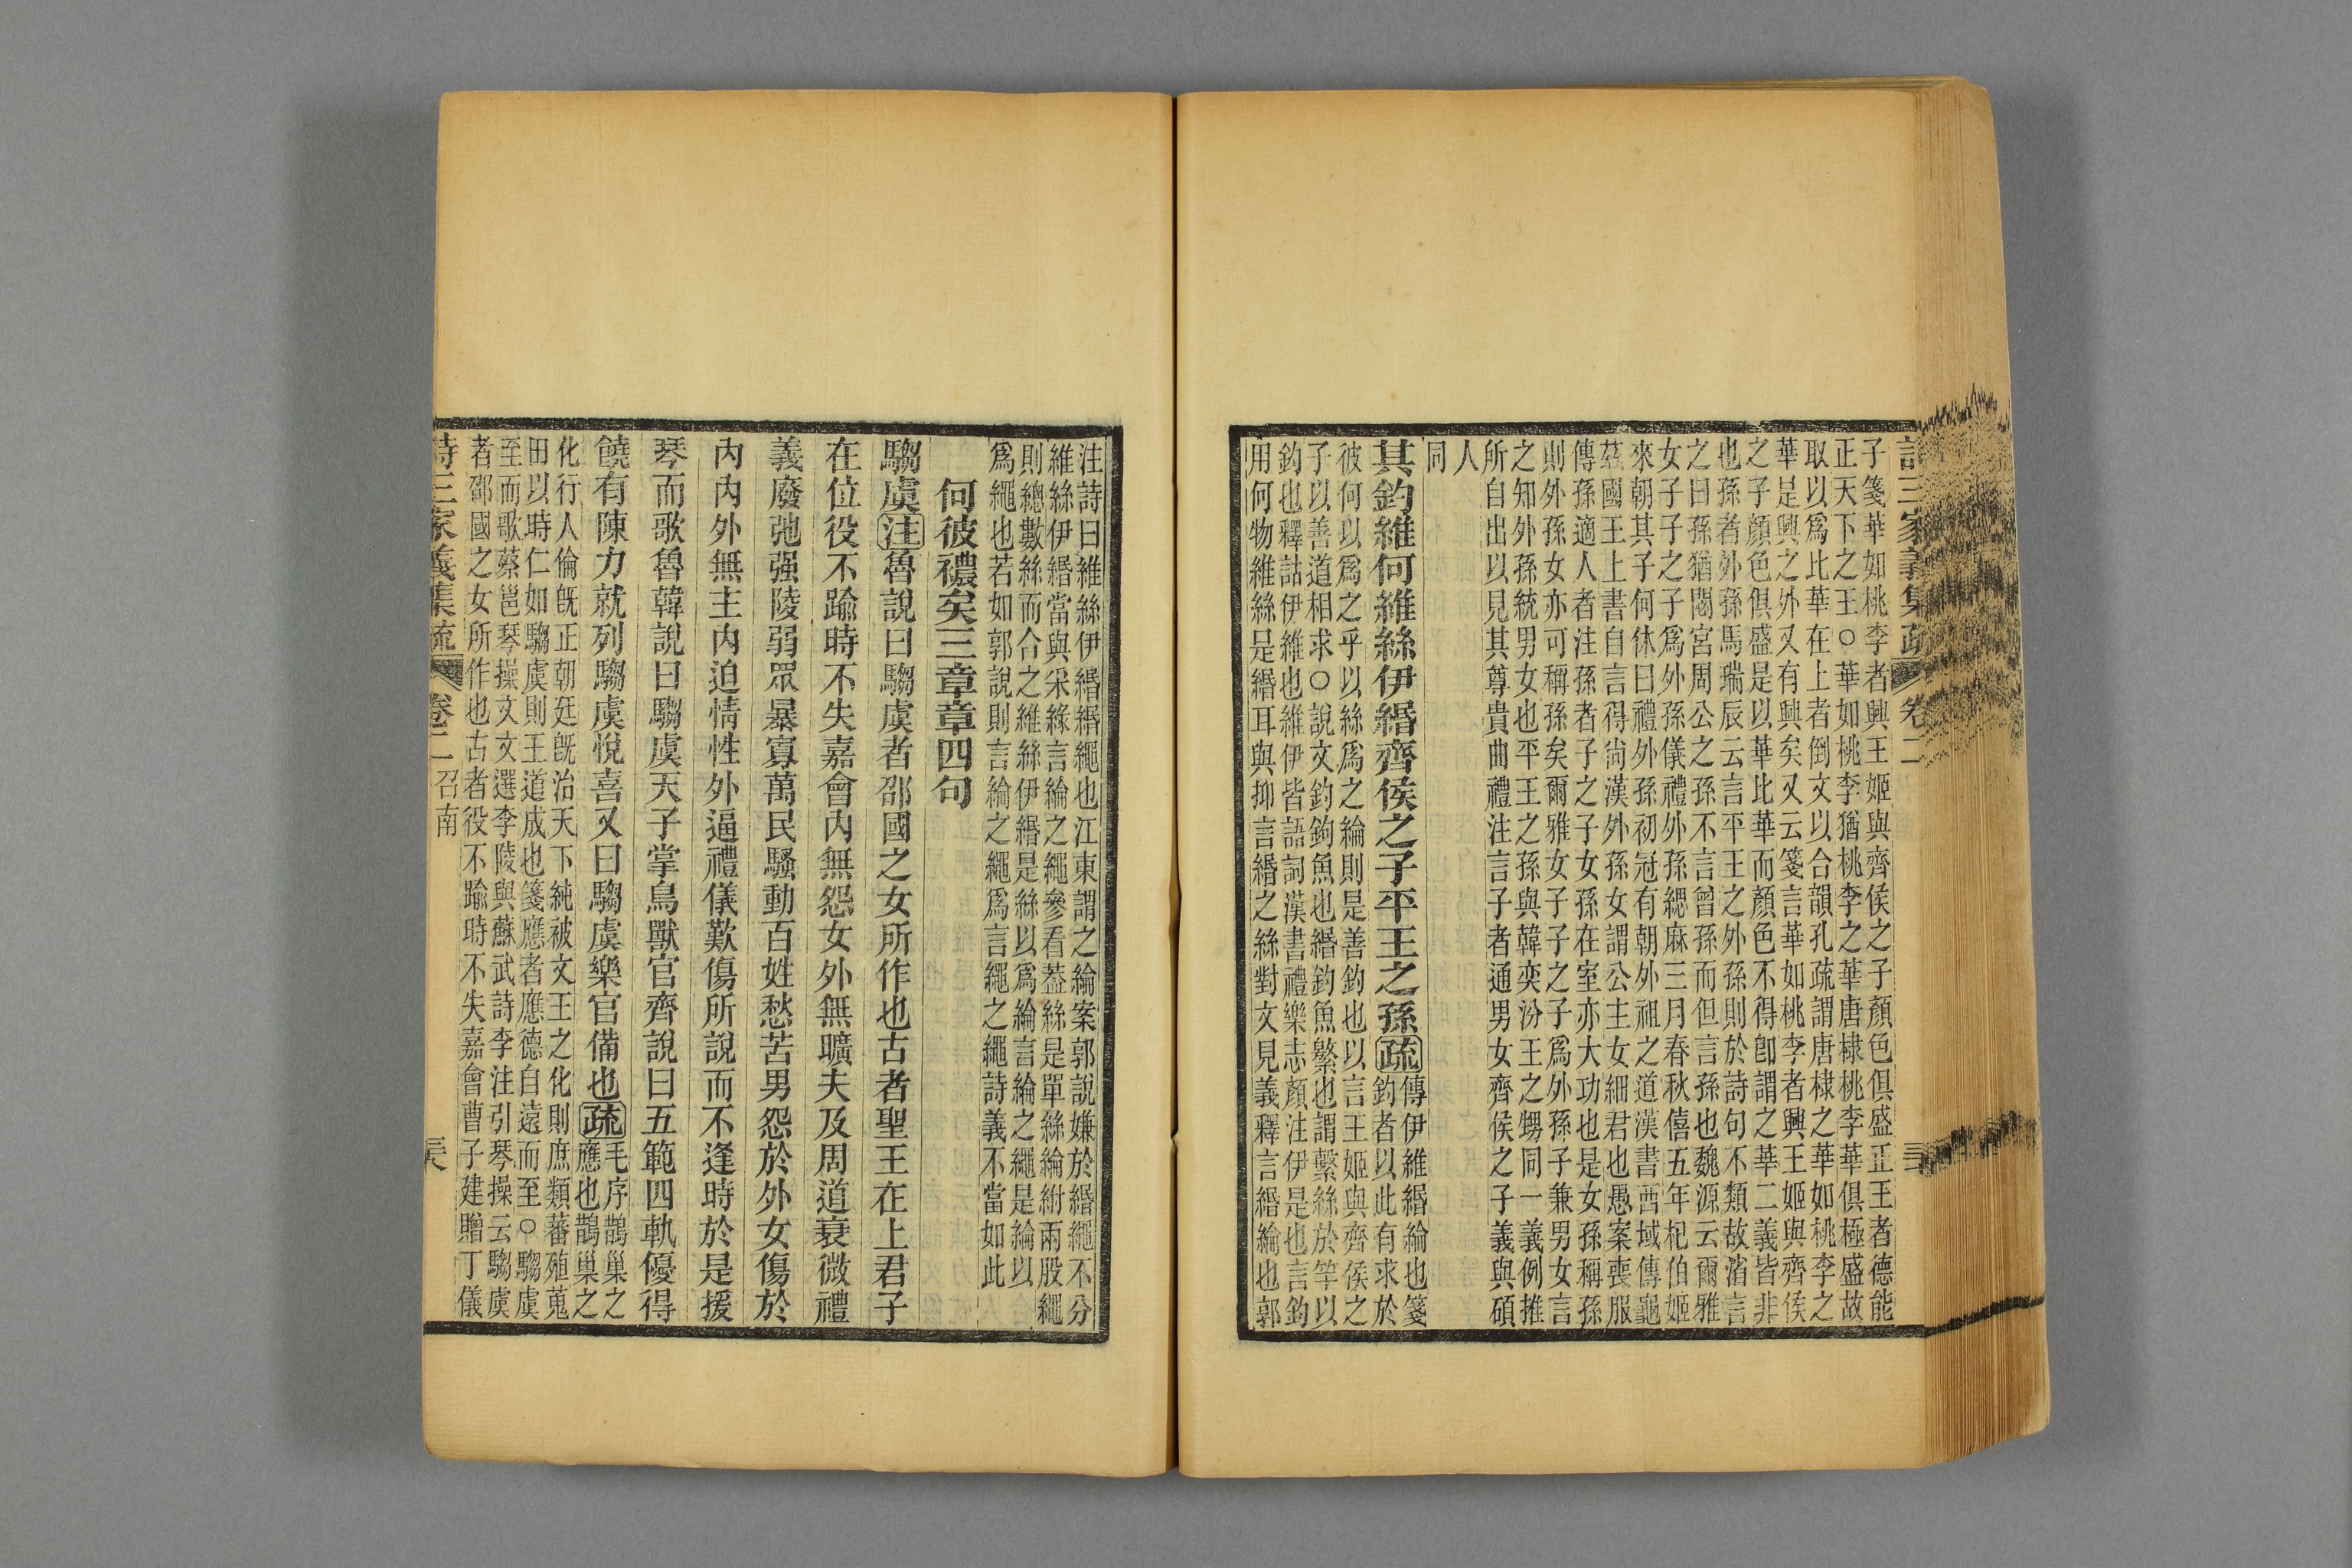 詩三家義集疏 卷二
子箋華如桃李者興王姬與齊侯之子顏色俱盛正王者德能
正天下之王○華如桃李猶桃李之華唐棣桃李華俱極盛故
取以爲比華在上者倒文以合韻孔疏謂唐棣之華如桃李之
華是興之外又有興矣又云箋言華如桃李者興王姬與齊侯
之子顏色俱盛是以華比華而顏色不得卽謂之華二義皆非
也孫者外孫馬瑞辰云言平王之外孫則於詩句不類故渻言
之曰孫猶閟宮周公之孫不言曾孫而但言孫也魏源云爾雅
女子子之子爲外孫儀禮外孫緦麻三月春秋僖五年杞伯姬
來朝其子何休曰禮外孫初冠有朝外祖之道漢書西域傳龜
茲國王上書自言得尙漢外孫女謂公主女細君也愚案喪服
傳孫適人者注孫者子之子女孫在室亦大功也是女孫稱孫
則外孫女亦可稱孫矣爾雅女子子之子爲外孫子兼男女言
之知外孫統男女也平王之孫與韓奕汾王之甥同一義例推
所自出以見其尊貴曲禮注言子者通男女齊侯之子義與碩
人
同
其釣維何維絲伊緡齊侯之子平王之孫疏傳伊維緡綸也箋
釣者以此有求於
彼何以爲之乎以絲爲之綸則是善釣也以言王姬與齊侯之
子以善道相求○說文釣鉤魚也緡釣魚繁也謂繫絲於竿以
釣也釋詁伊維也維伊皆語詞漢書禮樂志顏注伊是也言釣
用何物維絲是緡耳與抑言緡之絲對文見義釋言緡綸也郭
注詩曰維絲伊緡緡繩也江東謂之綸案郭說嫌於緡繩不分
維絲伊緡當與采綠言綸之繩參看葢絲是單絲綸紨兩股繩
則總數絲而合之維絲伊緡是絲以爲綸言綸之繩是綸以
爲繩也若如郭說則言綸之繩爲言繩之繩詩義不當如此
何彼襛矣三章章四句
騶虞注魯說曰騶虞者邵國之女所作也古者聖王在上君子
在位役不踰時不失嘉會內無怨女外無曠夫及周道衰微禮
義廢弛强陵弱眾暴寡萬民騷動百姓愁苦男怨於外女傷於
內內外無主內迫情性外逼禮儀歎傷所說而不逢時於是援
琴而歌魯韓說曰騶虞天子掌鳥獸官齊說曰五範四軌優得
饒有陳力就列騶虞悅喜又曰騶虞樂官備也疏毛序鵲巢之
應也鵲巢之
化行人倫旣正朝廷旣治天下純被文王之化則庶類蕃殖蒐
田以時仁如騶虞則王道成也箋應者應德自遠而至○騶虞
至而歌蔡邕琴操文文選李陵與蘇武詩李注引琴操云騶虞
者邵國之女所作也古者役不踰時不失嘉會曹子建贈丁儀
詩三家義集疏 卷二 召南